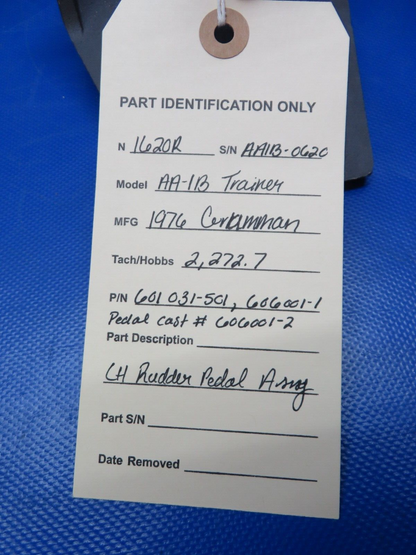 PART IDENTIFICATION ONLY
N 1620R S/N AA1B-0620
Model AA-1B Trainer
MFG 1976 Grumman
Tach/Hobbs 2,272.7
P/N 601031-501, 606001-1
Pedal cast # 606001-2
Part Description
LH Rudder Pedal Assy
Part S/N
Date Removed